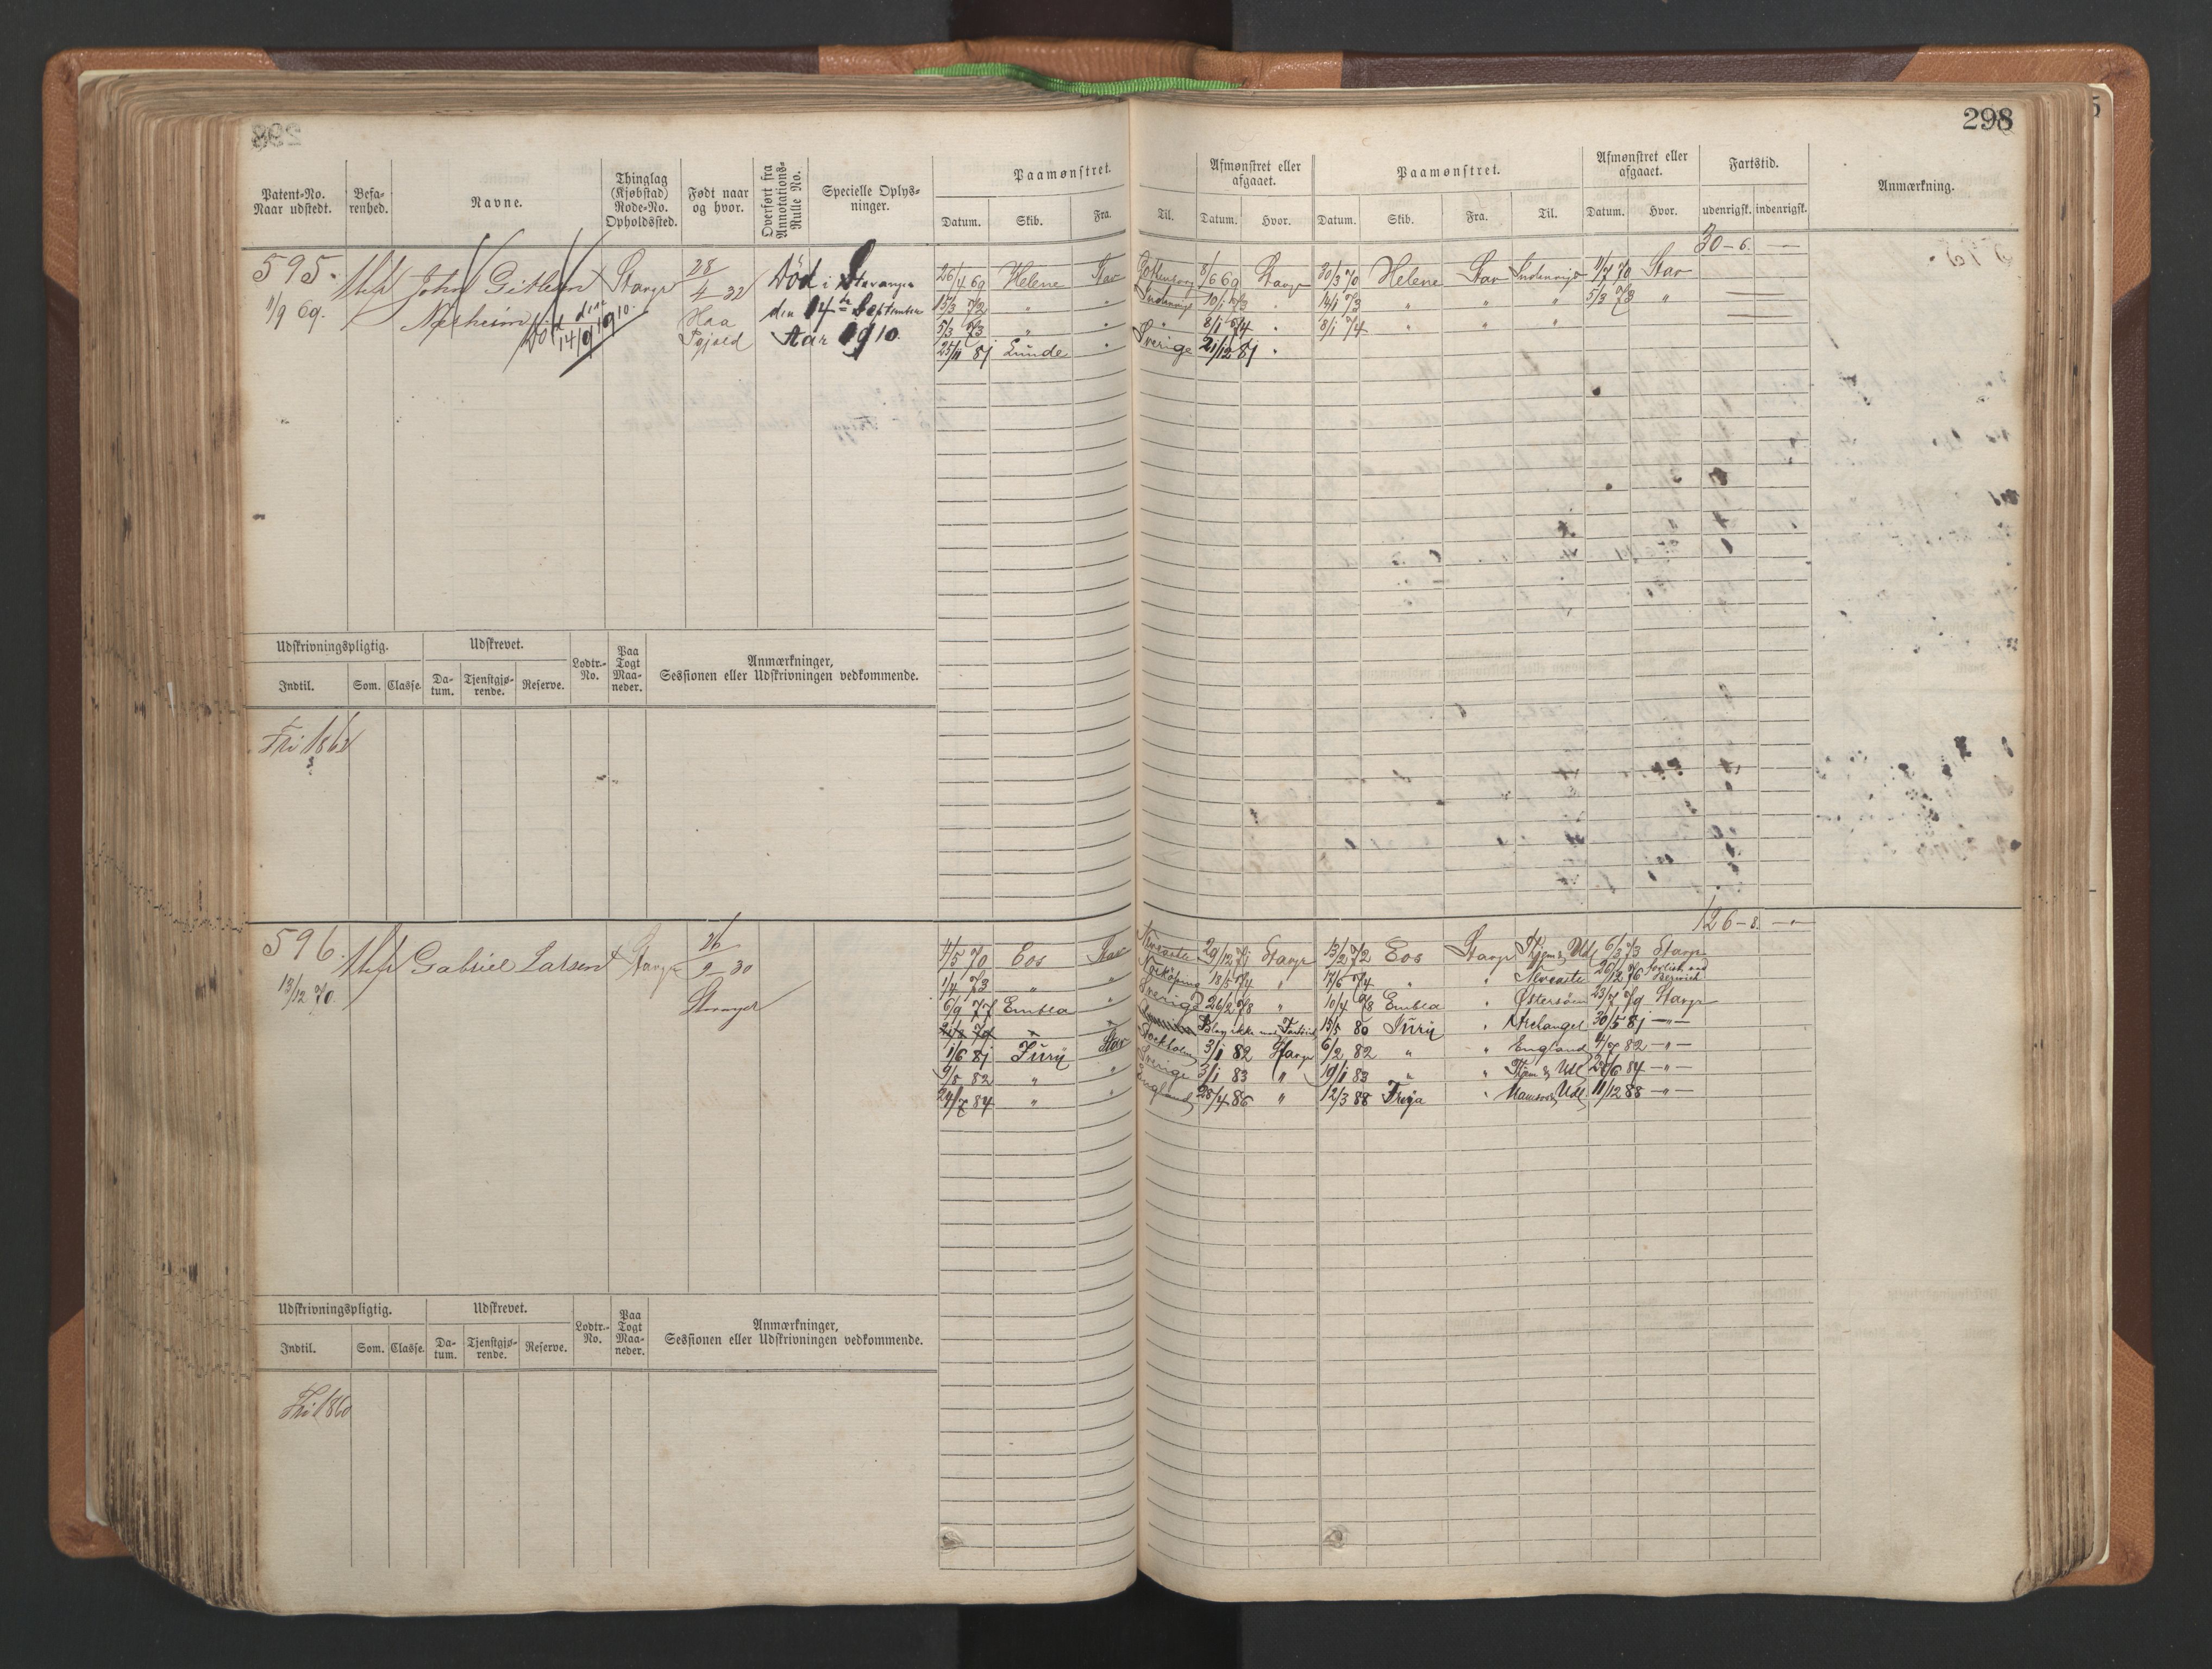 298
Patent=No.
Naar udstedt.
Befa=
renhed.
Navne.
Thinglag
(Kjøbstad)
Rode=No.
Opholdssted.
Født naar
og hvor.
Overført fra
Annotations=
Rulle No.
Specielle Oplys=
ninger.
Paamønstret.
Datum. Skib. Fra. Til.
Afmønstret eller
afgaaet.
Datum. Hvor.
Paamønstret.
Datum. Skib. Fra. Til.
Afmønstret eller
afgaaet.
Datum. Hvor.
Fartstid.
udenrigsk. indenrigsk.
Anmærkning.
30-6. —
595.
1/9 69.
John Gitlesen
Nærheim
Død den
14/9 1910.
Stavgr
28
4-32
Haa
Død i Stavanger
den 14de September
Aar 1910.
26/4 69 Helene Stav 8/6 69 Stavgr 30/3 70 Helene Stav Indenrigs 1/7 70 Stav
15/3 72 " " Indenrigs 10/1 73 " 14/1 73 " " " 5/3 73 "
5/3 73 " " " 8/1 74 " 8/1 74 " " "
25/11 81 Lunde " Sverige 21/12 81 "
Udskrivningspligtig.
Indtil. Som. Classe.
Udskrevet.
Da=
tum.
Tjenstgjø=
rende.
Reserve.
Lodtr.=
No.
Paa
Togt
Maa=
neder.
Anmærkninger,
Sessionen eller Udskrivningen vedkommende.
Fri 1862
126-8. —
596.
13/12 70.
Gabriel Larsen
Stavgr
26
9-30
Stavanger
4/5 70 Eos Stav Newcastle 29/12 71 Stavgr 13/2 72 Eos Stavgr Hjem & Udl 6/3 73 Stavgr
1/4 73 " " Norköping 18/5 74 " 17/6 74 " " Newcastle 26/12 76 forlist ved
Berwick
6/9 77 Embla " Sverige 26/2 78 " 10/4 78 Embla " Østersöen 23/7 79 Stavgr
Blev ikke med Fartöiet 15/5 80 Jury " Archangel 30/5 81 —"—
1/6 81 Jury Stav Stockholm 3/1 82 Stavgr 6/2 82 " " England 4/7 82 —"—
9/8 82 " " Sverige 3/1 83 " 19/1 83 " " Hjem & Udl 28/6 84 —"—
24/7 84 " " England 28/4 86 " 12/3 88 Freja " Udl. 11/12 88 —"—
Udskrivningspligtig.
Indtil. Som. Classe.
Udskrevet.
Da=
tum.
Tjenstgjø=
rende.
Reserve.
Lodtr.=
No.
Paa
Togt
Maa=
neder.
Anmærkninger,
Sessionen eller Udskrivningen vedkommende.
Fri 1860